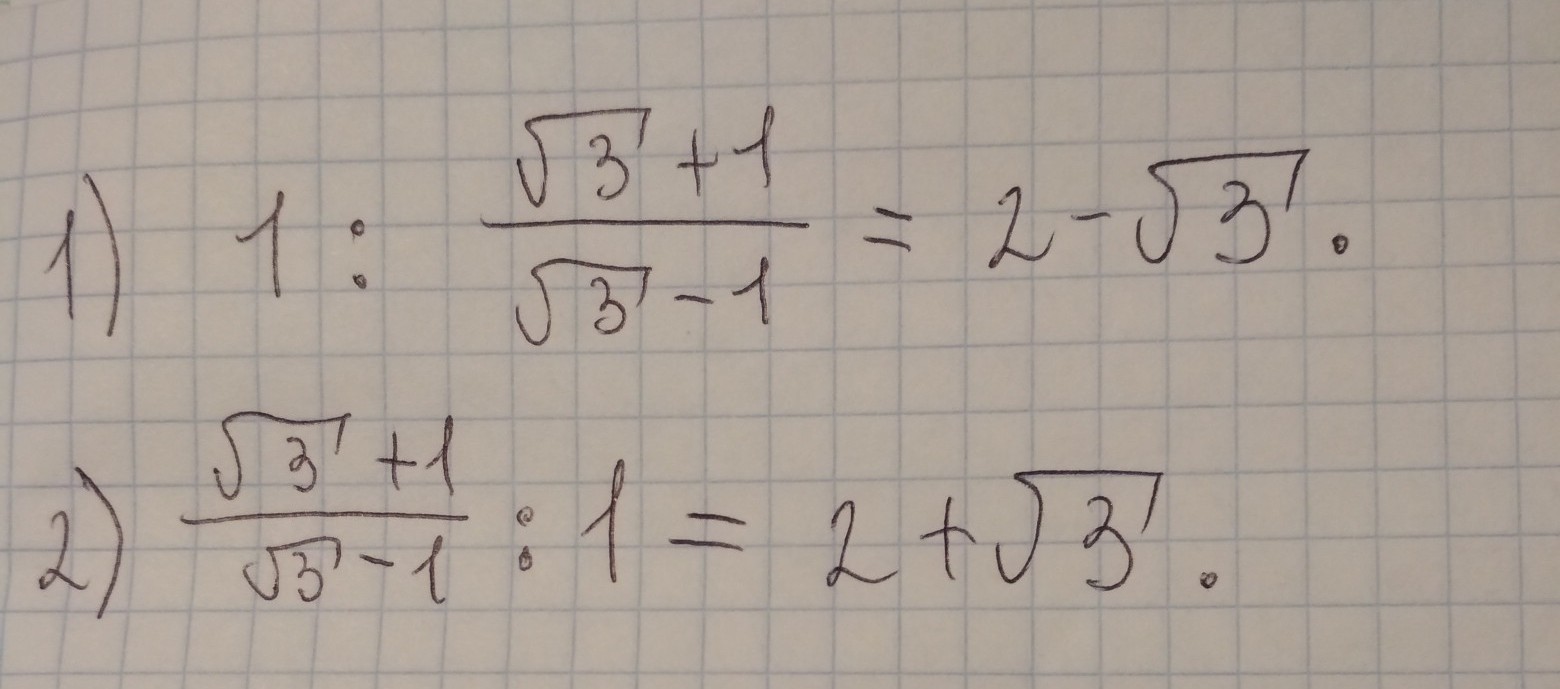 1) 1 : (√3 + 1)/(√3 - 1) = 2 - √3.
2) (√3 + 1)/(√3 - 1) : 1 = 2 + √3.